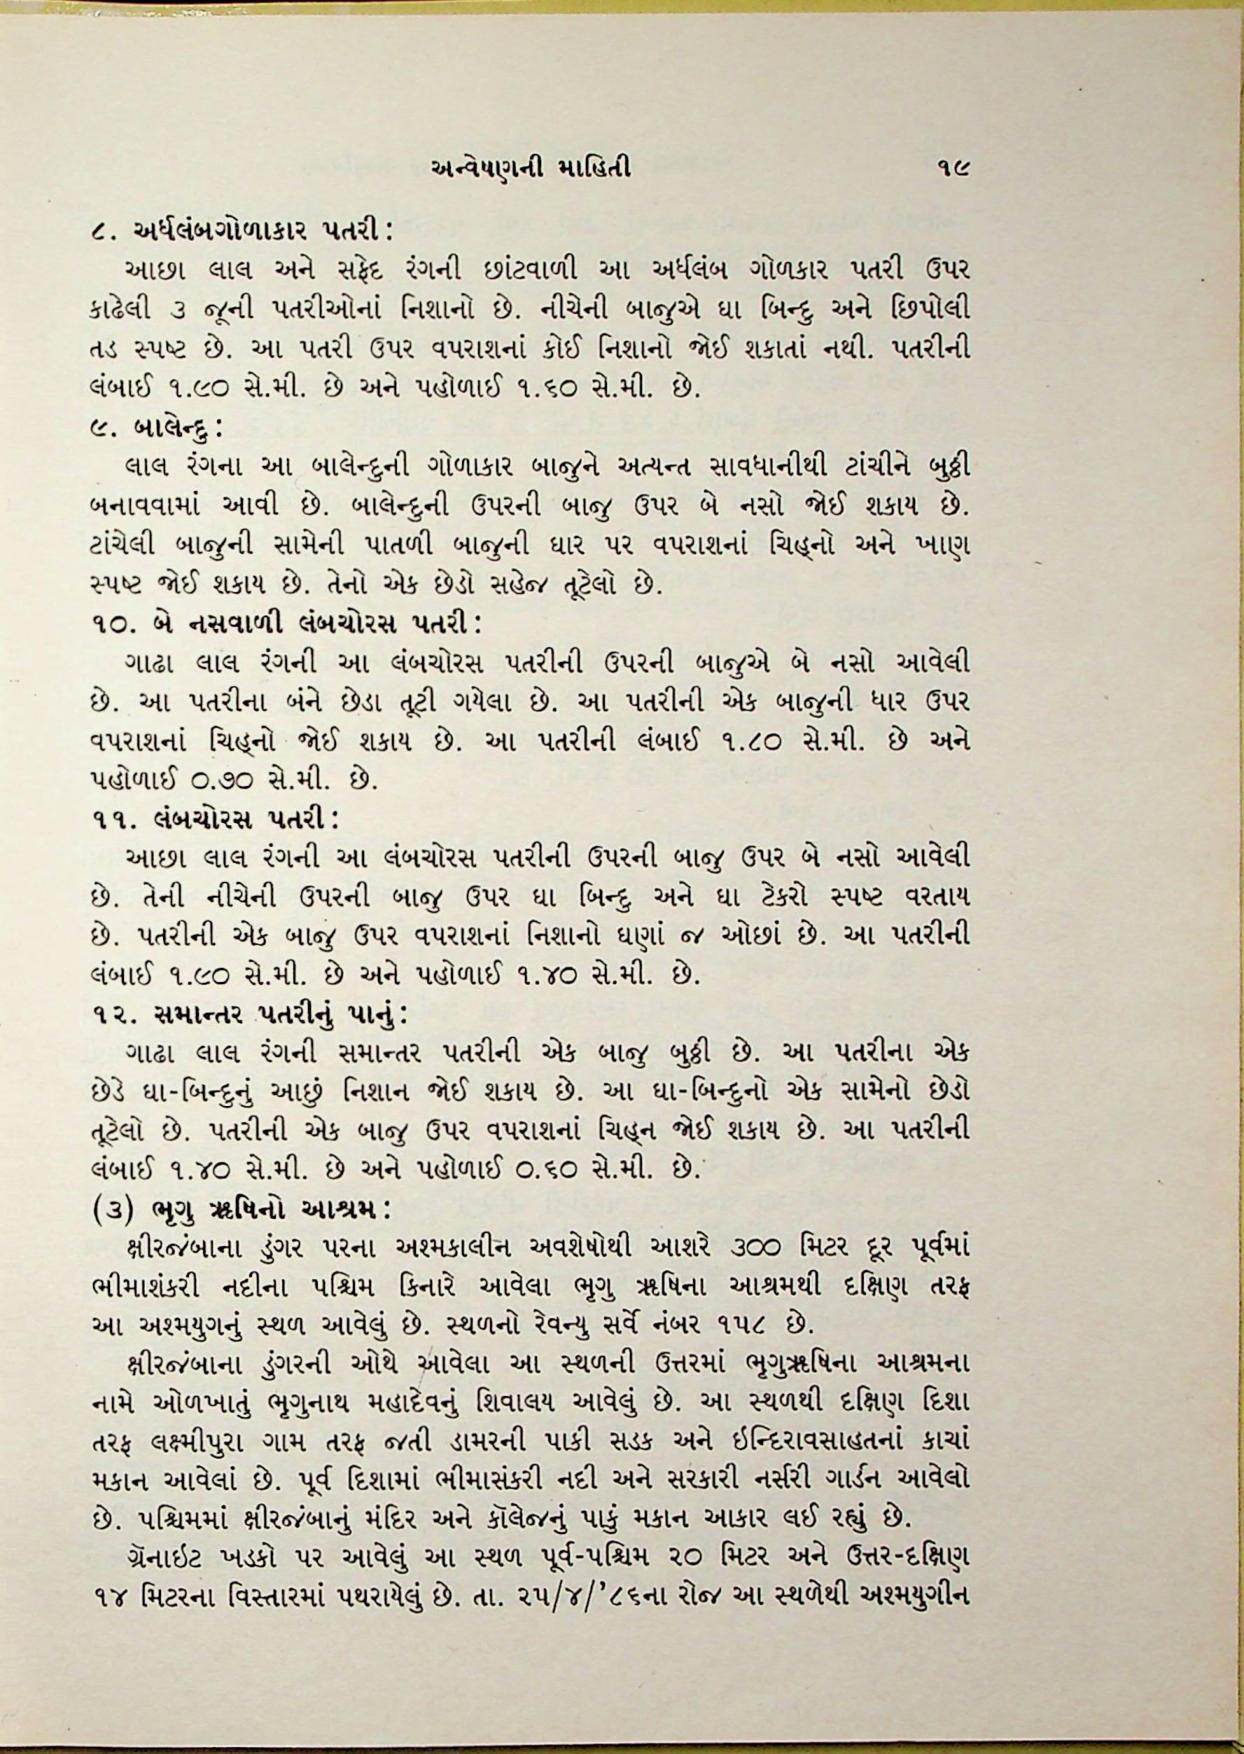 અન્વેષણની માહિતી ૧૯
૮. અર્ધલંબગોળાકાર પતરી :
આછા લાલ અને સફેદ રંગની છાંટવાળી આ અર્ધલંબ ગોળકાર પતરી ઉપર
કાઢેલી ૩ જૂની પતરીઓનાં નિશાનો છે. નીચેની બાજુએ ઘા બિન્દુ અને છિપોલી
તડ સ્પષ્ટ છે. આ પતરી ઉપર વપરાશનાં કોઈ નિશાનો જોઈ શકાતાં નથી. પતરીની
લંબાઈ ૧.૯૦ સે.મી. છે અને પહોળાઈ ૧.૬૦ સે.મી. છે.
૯. બાલેન્દુ :
લાલ રંગના આ બાલેન્દુની ગોળાકાર બાજુને અત્યન્ત સાવધાનીથી ટાંચીને બુઠ્ઠી
બનાવવામાં આવી છે. બાલેન્દુની ઉપરની બાજુ ઉપર બે નસો જોઈ શકાય છે.
ટાંચેલી બાજુની સામેની પાતળી બાજુની ધાર પર વપરાશનાં ચિહ્નો અને ખાણ
સ્પષ્ટ જોઈ શકાય છે. તેનો એક છેડો સહેજ તૂટેલો છે.
૧૦. બે નસવાળી લંબચોરસ પતરી :
ગાઢા લાલ રંગની આ લંબચોરસ પતરીની ઉપરની બાજુએ બે નસો આવેલી
છે. આ પતરીના બંને છેડા તૂટી ગયેલા છે. આ પતરીની એક બાજુની ધાર ઉપર
વપરાશનાં ચિહ્નો જોઈ શકાય છે. આ પતરીની લંબાઈ ૧.૮૦ સે.મી. છે અને
પહોળાઈ ૦.૭૦ સે.મી. છે.
૧૧. લંબચોરસ પતરી :
આછા લાલ રંગની આ લંબચોરસ પતરીની ઉપરની બાજુ ઉપર બે નસો આવેલી
છે. તેની નીચેની ઉપરની બાજુ ઉપર ઘા બિન્દુ અને ઘા ટેકરો સ્પષ્ટ વરતાય
છે. પતરીની એક બાજુ ઉપર વપરાશનાં નિશાનો ઘણાં જ ઓછાં છે. આ પતરીની
લંબાઈ ૧.૯૦ સે.મી. છે અને પહોળાઈ ૧.૪૦ સે.મી. છે.
૧૨. સમાન્તર પતરીનું પાનું :
ગાઢા લાલ રંગની સમાન્તર પતરીની એક બાજુ બુઠ્ઠી છે. આ પતરીના એક
છેડે ઘા-બિન્દુનું આછું નિશાન જોઈ શકાય છે. આ ઘા-બિન્દુનો એક સામેનો છેડો
તૂટેલો છે. પતરીની એક બાજુ ઉપર વપરાશનાં ચિહ્ન જોઈ શકાય છે. આ પતરીની
લંબાઈ ૧.૪૦ સે.મી. છે અને પહોળાઈ ૦.૬૦ સે.મી. છે.
(૩) ભૃગુ ઋષિનો આશ્રમ :
ક્ષીરજંબાના ડુંગર પરના અશ્મકાલીન અવશેષોથી આશરે ૩૦૦ મિટર દૂર પૂર્વમાં
ભીમાશંકરી નદીના પશ્ચિમ કિનારે આવેલા ભૃગુ ઋષિના આશ્રમથી દક્ષિણ તરફ
આ અશ્મયુગનું સ્થળ આવેલું છે. સ્થળનો રેવન્યુ સર્વે નંબર ૧૫૮ છે.
ક્ષીરજંબાના ડુંગરની ઓથે આવેલા આ સ્થળની ઉત્તરમાં ભૃગુઋષિના આશ્રમના
નામે ઓળખાતું ભૃગુનાથ મહાદેવનું શિવાલય આવેલું છે. આ સ્થળથી દક્ષિણ દિશા
તરફ લક્ષ્મીપુરા ગામ તરફ જતી ડામરની પાકી સડક અને ઇન્દિરાવસાહતનાં કાચાં
મકાન આવેલાં છે. પૂર્વ દિશામાં ભીમાસંકરી નદી અને સરકારી નર્સરી ગાર્ડન આવેલો
છે. પશ્ચિમમાં ક્ષીરજંબાનું મંદિર અને કૉલેજનું પાકું મકાન આકાર લઈ રહ્યું છે.
ગ્રૅનાઇટ ખડકો પર આવેલું આ સ્થળ પૂર્વ-પશ્ચિમ ૨૦ મિટર અને ઉત્તર-દક્ષિણ
૧૪ મિટરના વિસ્તારમાં પથરાયેલું છે. તા. ૨૫/૪/'૮૬ના રોજ આ સ્થળેથી અશ્મયુગીન